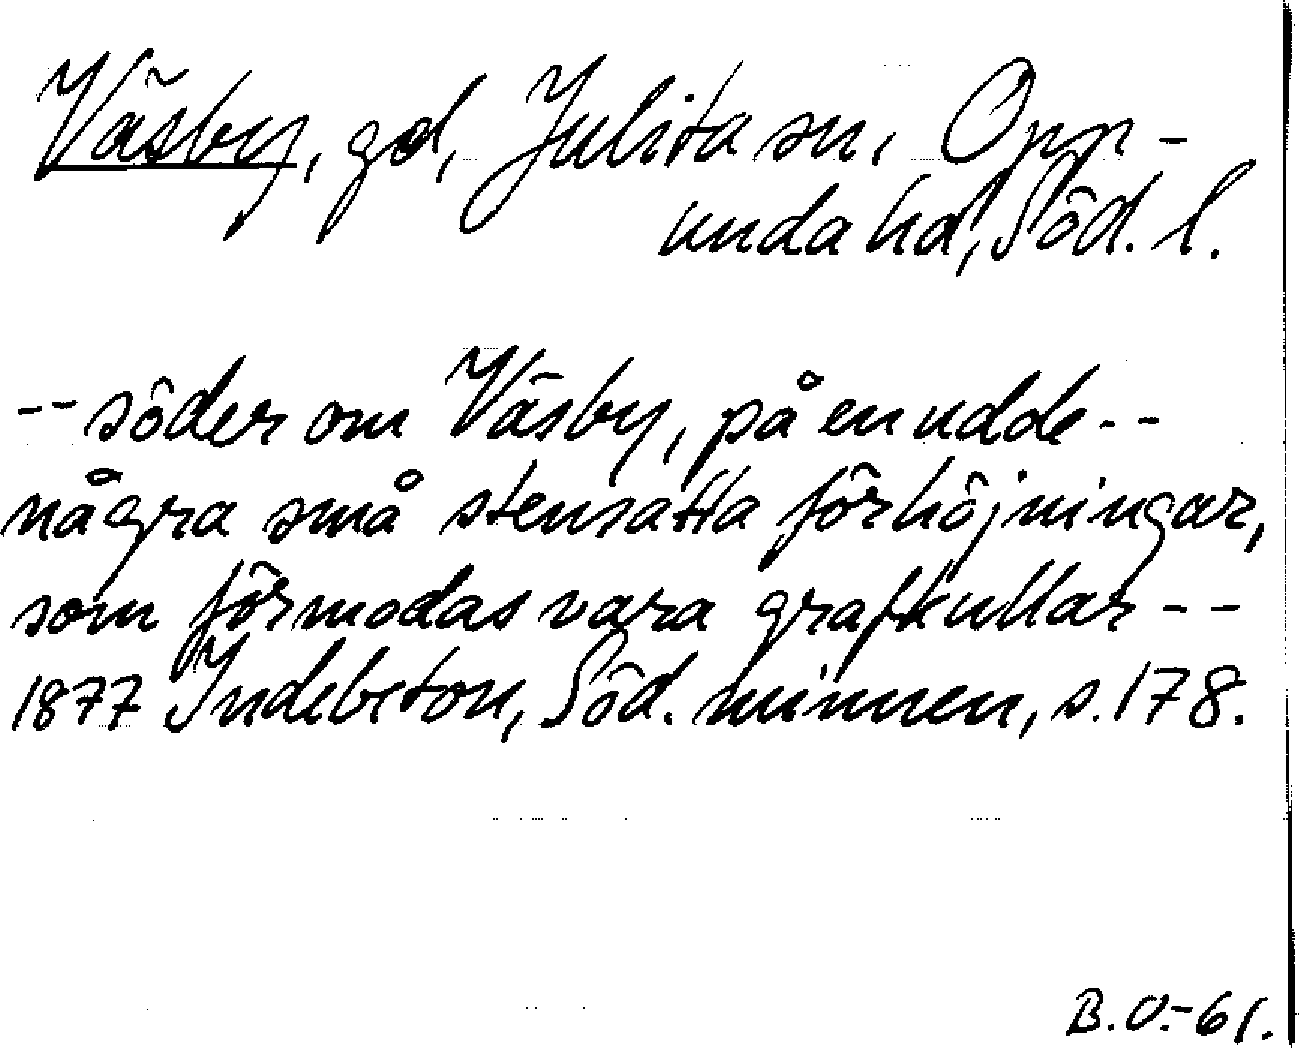 Väsby, gd, Julita sn, Opp-
unda hd, Söd. l.
-- söder om Väsby, på en udde --
några små stensatta förhöjningar,
som förmodas vara grafkullar --
1877 Indebetou, Söd. minnen, s. 178.
B.O.-61.